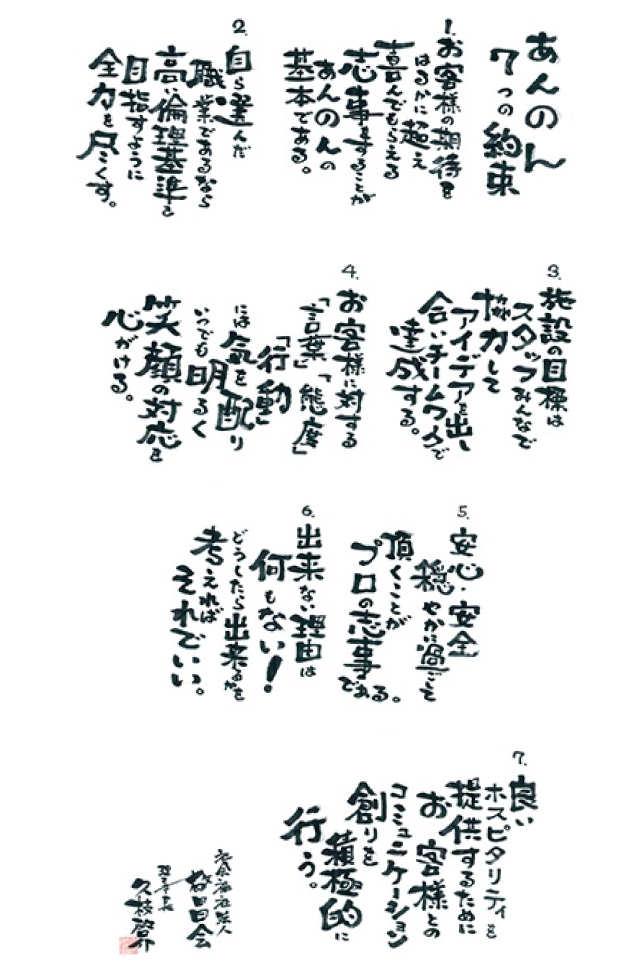 あんのん
7つの約束
1.
お客様の期待を
はるかに超え
喜んでもらえる
志事をすることが
あんのんの
基本である。
2.
自ら選んだ
職業であるなら
高い倫理基準を
目指すように
全力を尽くす。
3.
施設の目標は
スタッフみんなで
協力して
アイデアを出し
合いチームワークで
達成する。
4.
お客様に対する
「言葉」「態度」
「行動」
には気を配り
いつでも明るく
笑顔の対応を
心がける。
5.
安心・安全
穏やかに過ごして
頂くことが
プロの志事である。
6.
出来ない理由は
何もない!
どうしたら出来るかを
考えれば
それでいい。
7.
良い
ホスピタリティを
提供するために
お客様との
コミュニケーション
創りを
積極的に
行う。
社会福祉法人
理事長
久枝啓介